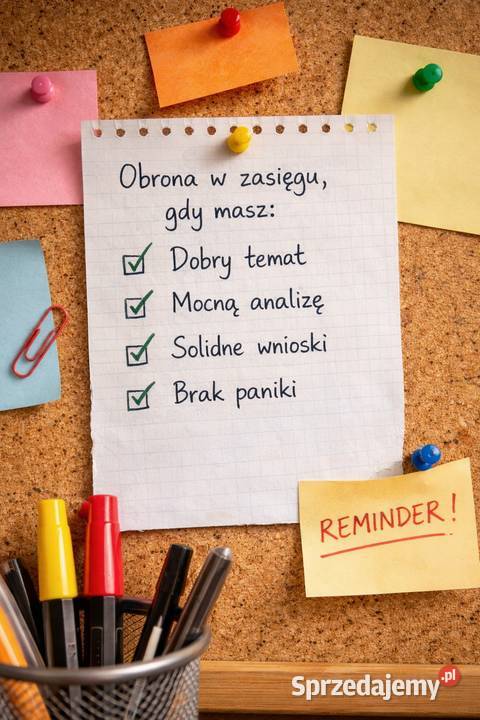 Obrona w zasięgu,
gdy masz:
Dobry temat
Mocną analizę
Solidne wnioski
Brak paniki
REMINDER!
Sprzedajemy.pl